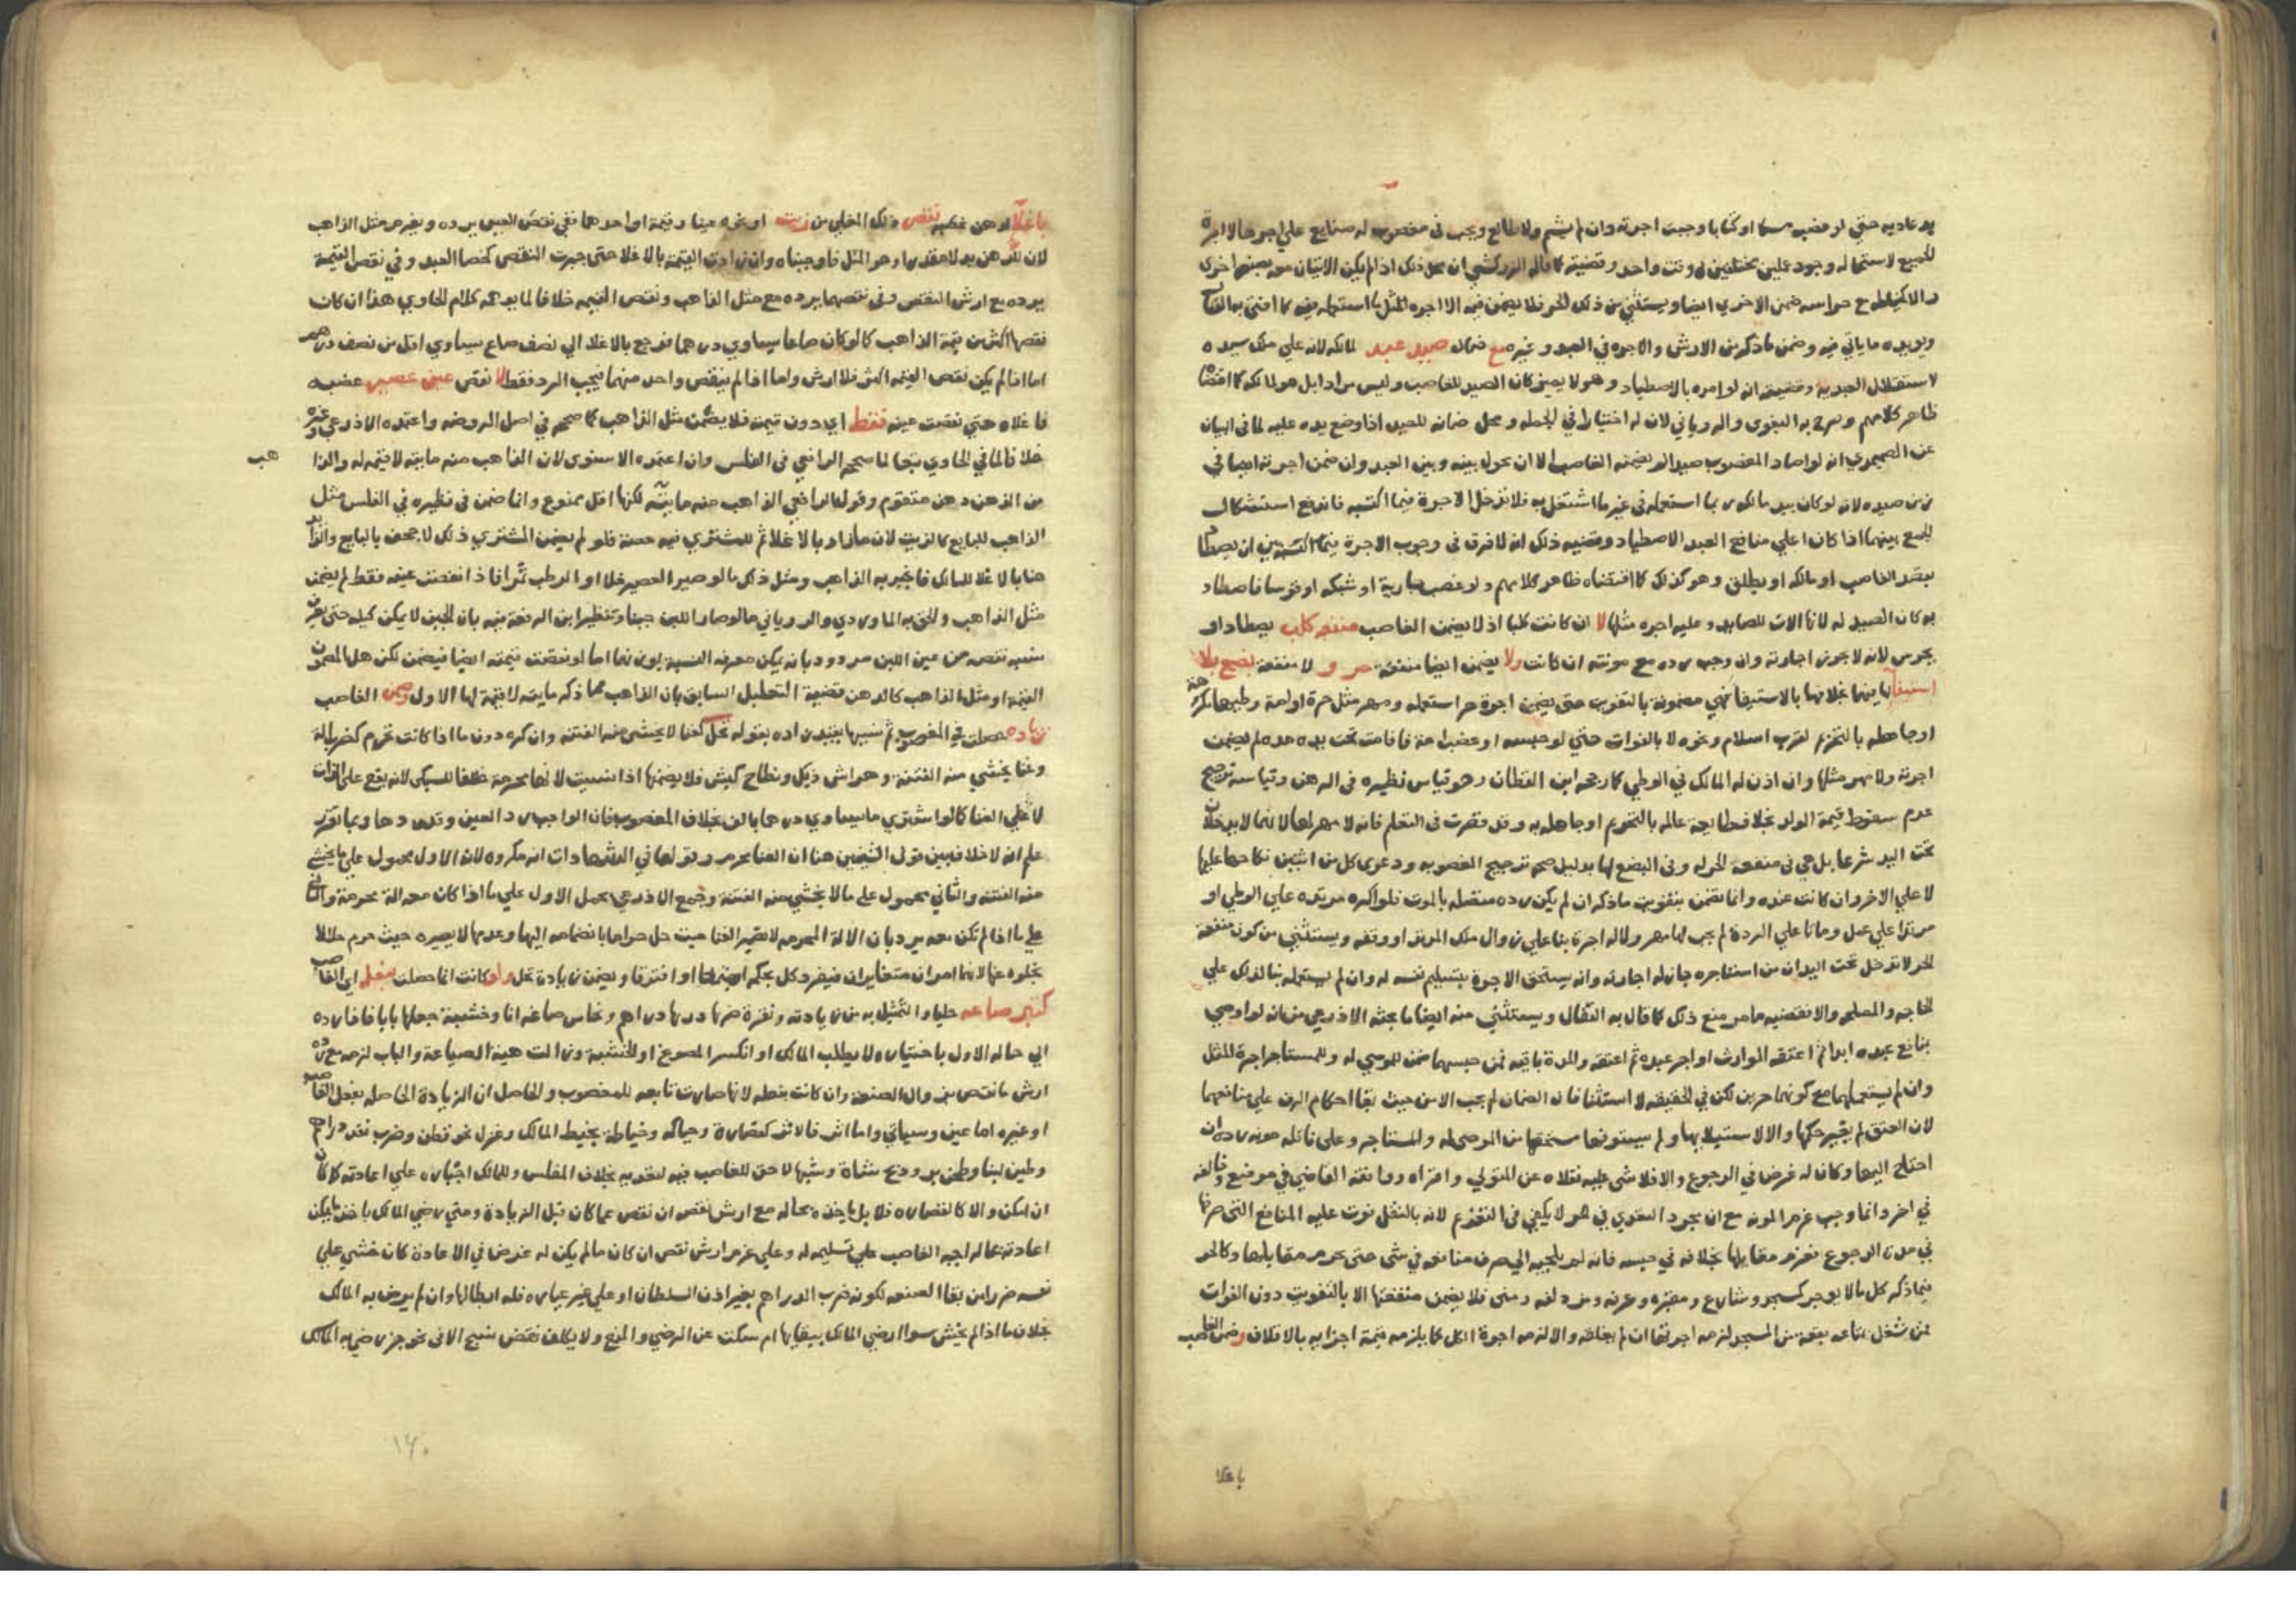 يد عاديه حتي لو غصب مسكا او كتابا وجبت اجرته وان لم يشم ولا طالع ويجب في مغصوب له صنايع علي اجرها لا اجرة
الجميع لاستحاله وجود عملين مختلفين في وقت واحد وقضيته كما قال الزركشي ان محل ذلك اذا لم يكن الاتيان معه بصنعة اخرى
والا كالخياطه مع حراسه ضمن الاخري ايضا ويستثني من ذلك الحر فلا يضمن فيه الا اجرة المثل لما استعمله فيه كما افتى به
ويويده ما ياتي فيه وضمن ما ذكر من الارش والاجره في العبد وغيره مع ضمان صيد عبد لمالكه لانه علي ملك سيده
لاستقلال العبد به وقضيته انه لو امره بالاصطياد وهو لا يميز كان الصيد للغاصب وليس مرادا بل هو لمالكه كما اقتضاه
ظاهر كلامهم وصرح به البغوي والروياني لان له اختيارا في الجمله ومحل ضمانه للصيد اذا وضع يده عليه لما في البيان
عن الصيمري انه لو اصاد المغصوب صيدا لم يضمنه الغاصب الا ان يحول بينه وبين العبد وان ضمن اجرته ايضا في
زمن صيده لانه لو كان بيد مالكه ربما استعمله في غير ما اشتغل به فلا تدخل الاجرة فيما اكتسبه فاندفع استشكال
الجمع بينهما اذا كان اعلي منافع العبد الاصطياد وقضيه ذلك انه لا فرق في وجوب الاجرة فيما اكتسبه بين ان يصطاد
بقصد الغاصب او مالكه او يطلق وهو كذلك كما اقتضاه ظاهر كلامهم ولو غصب جارية او شبكه او قوسا فاصطاد
به كان الصيد له لانها الات للصايد وعليه اجره مثلها لا ان كانت كلبا اذ لا يضمن الغاصب منفعه كلب يصطاد او
يحرس لانه لا يجوز اجارته وان وجب رده مع مونته ان كانت ولا يضمن ايضا منفعة حر و لا منفعة بضع بلا
استيفا لهما بخلافهما بالاستيفا فهي مضمونة بالتفويت حتى يضمن اجرة حر استعمله ومهر مثل حرة او امة وطيها مكرهة
او جاهله بالتحريم لقرب اسلام ونحوه لا بالفوات حتي لو حبسه او غصب امة فاقامت تحت يده مده لم يضمن
اجرته ولا مهر مثلها وان اذن له المالك في الوطي كما رجحه ابن القطان وهو قياس نظيره في الرهن وقياسه ترجيح
عدم سقوط قيمة الولد بخلاف مطاوعة عالمه بالتحريم او جاهله به وقد قصرت في التعلم فانه لا مهر لها لانهما لا يدخلان
تحت اليد شرعا بل هي في منفعة الحر له وفي البضع لها بدليل صحة تزويج المغصوبه ودعوى كل من اثنين نكاحها عليها
لا علي الاخر وان كانت عنده وانما يضمن بتفويت ما ذكر ان لم يكن رده متصله بالموت فلو اكره مرتده علي الوطي او
مرتدا علي عمل وماتا علي الردة لم يجب لها مهر ولا له اجرة بناعلي زوال ملك المرتد او وقفه ويستثني من كون منفعة
الحر لا تدخل تحت اليد ان من استاجره جاز له اجارته وانه يستحق الاجرة بتسليم نفسه له وان لم يستعمله بنا لذلك علي
الحاجه والمصلحه والا فقضيه ما مر منع ذلك كما قال به القفال ويستثني منه ايضا ما بحثه الاذرعي من انه لو اوصي
بنافع عبده ابدا ثم اعتقه الوارث او اجر عبده ثم اعتقه والمدة باقيه فمن حبسهما ضمن للموصي له وللمستاجر اجرة المثل
وان لم يستعملهما مع كونهما حرين لكن في الحقيقه لا استثنا فان الضمان لم يجب الا من حيث بقا احكام الرق علي منافعهما
لان العتق لم يغير حكمها والا لاستيلا بها ولم يستوفها مستحقها من الموصى له والمستاجر وعلي ناقله مونه رده ان
احتاج اليها وكان له غرض في الرجوع والا فلا شي عليه نقلاه عن المتولي واقراه ووافقه القاضي في موضع وخالفه
في اخر وانما وجب غرم المونه مع ان مجرد التعدي في هو لا يكفي في التغريم لانه بالنقل فوت عليه المنافع التي صرفها
في مدة الرجوع فغرم مقابلها بخلافه في حبسه فانه لم يلجيه الي صرف منافعه في شي حتى يحرم مقابلها وكالحر
فيما ذكر كل ما لا يوجر كمسجد وشارع ومقبره وعرفه ومزدلفه ومنى فلا يضمن منفعتها الا بالتفويت دون الفوات
فمن شغل بمتاعه بقعة من المسجد لزمه اجرتها ان لم يغلقه والا لزمه اجرة الكل كما يلزمه قيمة اجزايه بالاتلاف وضمن الغاصب
باغلا
باغلا لدهن غصبه نقص ذلك المغلي من زيت او نحوه عينا وقيمة او احدهما ففي نقص العين يرده ويغرم مثل الذاهب
لان للدهن بدلا مقدرا وهو المثل فاوجبناه وان زادت القيمة بالاغلا حتى جبرت النقص كخصا العبد وفي نقص القيمة
يرده مع ارش النقص وفي نقصهما يرده مع مثل الذاهب ونقص القيمه خلافا لما يوهمه كلام الحاوي هذا ان كان
نقصها اكثر من قيمة الذاهب كما لو كان صاعا يساوي درهما فرجع بالاغلا الي نصف صاع يساوي اقل من نصف درهم
اما اذا لم يكن نقص القيمه اكثر فلا ارش واما اذا لم ينقص واحد منهما فيجب الرد فقط لا نقص عين عصير غصبه
فاغلاه حتي نقصت عينه فقط اي دون قيمته فلا يضمن مثل الذاهب كما صححه في اصل الروضه واعتمده الاذرعي وغيره
خلافا لما في الحاوي تبعا لما صححه الرافعي في الفلس وان اعتمده الاسنوي لان الذاهب منه مايته لا قيمه له والذا
هب
من الدهن دهن متقوم وقول الرافعي الذاهب منه مايته لكنها اقل ممنوع وانما ضمن في نظيره في الفلس مثل
الذاهب للبايع كالزيت لان ما زاد بالاغلا ثم للمشتري فيه حصة فلو لم يضمن المشتري ذلك لاجحف بالبايع والزايد
هنا بالاغلا للمالك فانجبر به الذاهب ومثل ذلك ما لو صير العصير خلا او الرطب تمرا فاذا نقصت عينه فقط لم يضمن
مثل الذاهب والحق به الماوردي والروياني ما لو صار اللبن جبنا وتنظير ابن الرفعة فيه بان الجبن لا يمكن كيله حتى يعرف
نسبه نقصه من عين اللبن مردود بانه يمكن معرفه النسبة بوزنهما اما لو نقصت قيمته ايضا فيضمن لكن هل المضمون
القيمة او مثل الذاهب كالدهن قضية التعليل السابق بان الذاهب مما ذكر مايته لا قيمة لها الاول وضمن الغاصب
زيادة حصلت في المغصوب ثم نسيها بقيد زاده بقوله تحل كغنا لا يخشى منه الفتنه وان كره دون ما اذا كانت تحرم كضرب الة
وغنا يخشي منه الفتنة وهراش ديك ونطاح كبش فلا يضمنها اذا نسيت لانها محرمة خلافا للسبكي لانه يقع على الذات
لا علي الغنا كما لو اشتري ما يساوي درهما بالف بخلاف المغصوب فان الواجب رد العين وقد ردها وبما تقرر
علم انه لا خلاف بين قول الشيخين هنا ان الغنا محرم وقولهما في الشهادات انه مكروه لان الاول محمول علي ما يخشي
منه الفتنه والثاني محمول على ما لا يخشي منه الفتنة وجمع الاذرعي بحمل الاول علي ما اذا كان معه الة محرمة والثاني
علي ما اذا لم تكن معه يرد بان الالة المحرمه لا تصير الغنا حيث حل حراما بانضمامه اليها وعدمها لا يصيره حيث حرم حلالا
بخلوه عنها لانهما امران متغايران فيفرد كل بحكمه اجتمعا او افترقا ويضمن زيادة تحل ولو كانت انما حصلت بفعله اي الغاصب
كتبر صاعه حليا والتمثيل به من زيادته ونقرة ضربها دراهم ونحاس صاغه انا وخشبة جعلها بابا فاذا رده
الي حاله الاول باختياره لا بطلب المالك او انكسر المصوغ او الخشبة وزالت هيئة الصياغة والباب لزمه مع رده
ارش ما نقص بزوال الصنعه وان كانت بفعله لانها صارت تابعه للمغصوب والحاصل ان الزيادة الحاصله بفعل الغاصب
او غيره اما عين وسياتي واما اثر فالاثر كقصارة وحياكه وخياطه بخيط المالك وغزل نحو قطن وضرب نقد دراهم
وطين لبنا وطحن بر وذبح شاة وشيها لا حق للغاصب فيه لتعديه بخلاف المفلس وللمالك اجباره علي اعادته كما كان
ان امكن والا كالقصاره فلا بل ياخذه بحاله مع ارش نقص ان نقص عما كان قبل الزيادة ومتي رضي المالك باخذ ما يمكن
اعادته بحاله اجبر الغاصب علي تسليمه له وعلي غرم ارش نقص ان كان ما لم يكن له غرض في الاعادة كان خشي علي
نفسه ضررا من بقا الصنعه لكونه ضرب الدراهم بغير اذن السلطان او علي غير عياره فله ابطالها وان لم يرض به المالك
بخلاف ما اذا لم يخش سوا ارضي المالك ببقايها ام سكت عن الرضي والمنع ولا يكلف نقض نسيج الا في نحو خز رضي به المالك
١٤٠